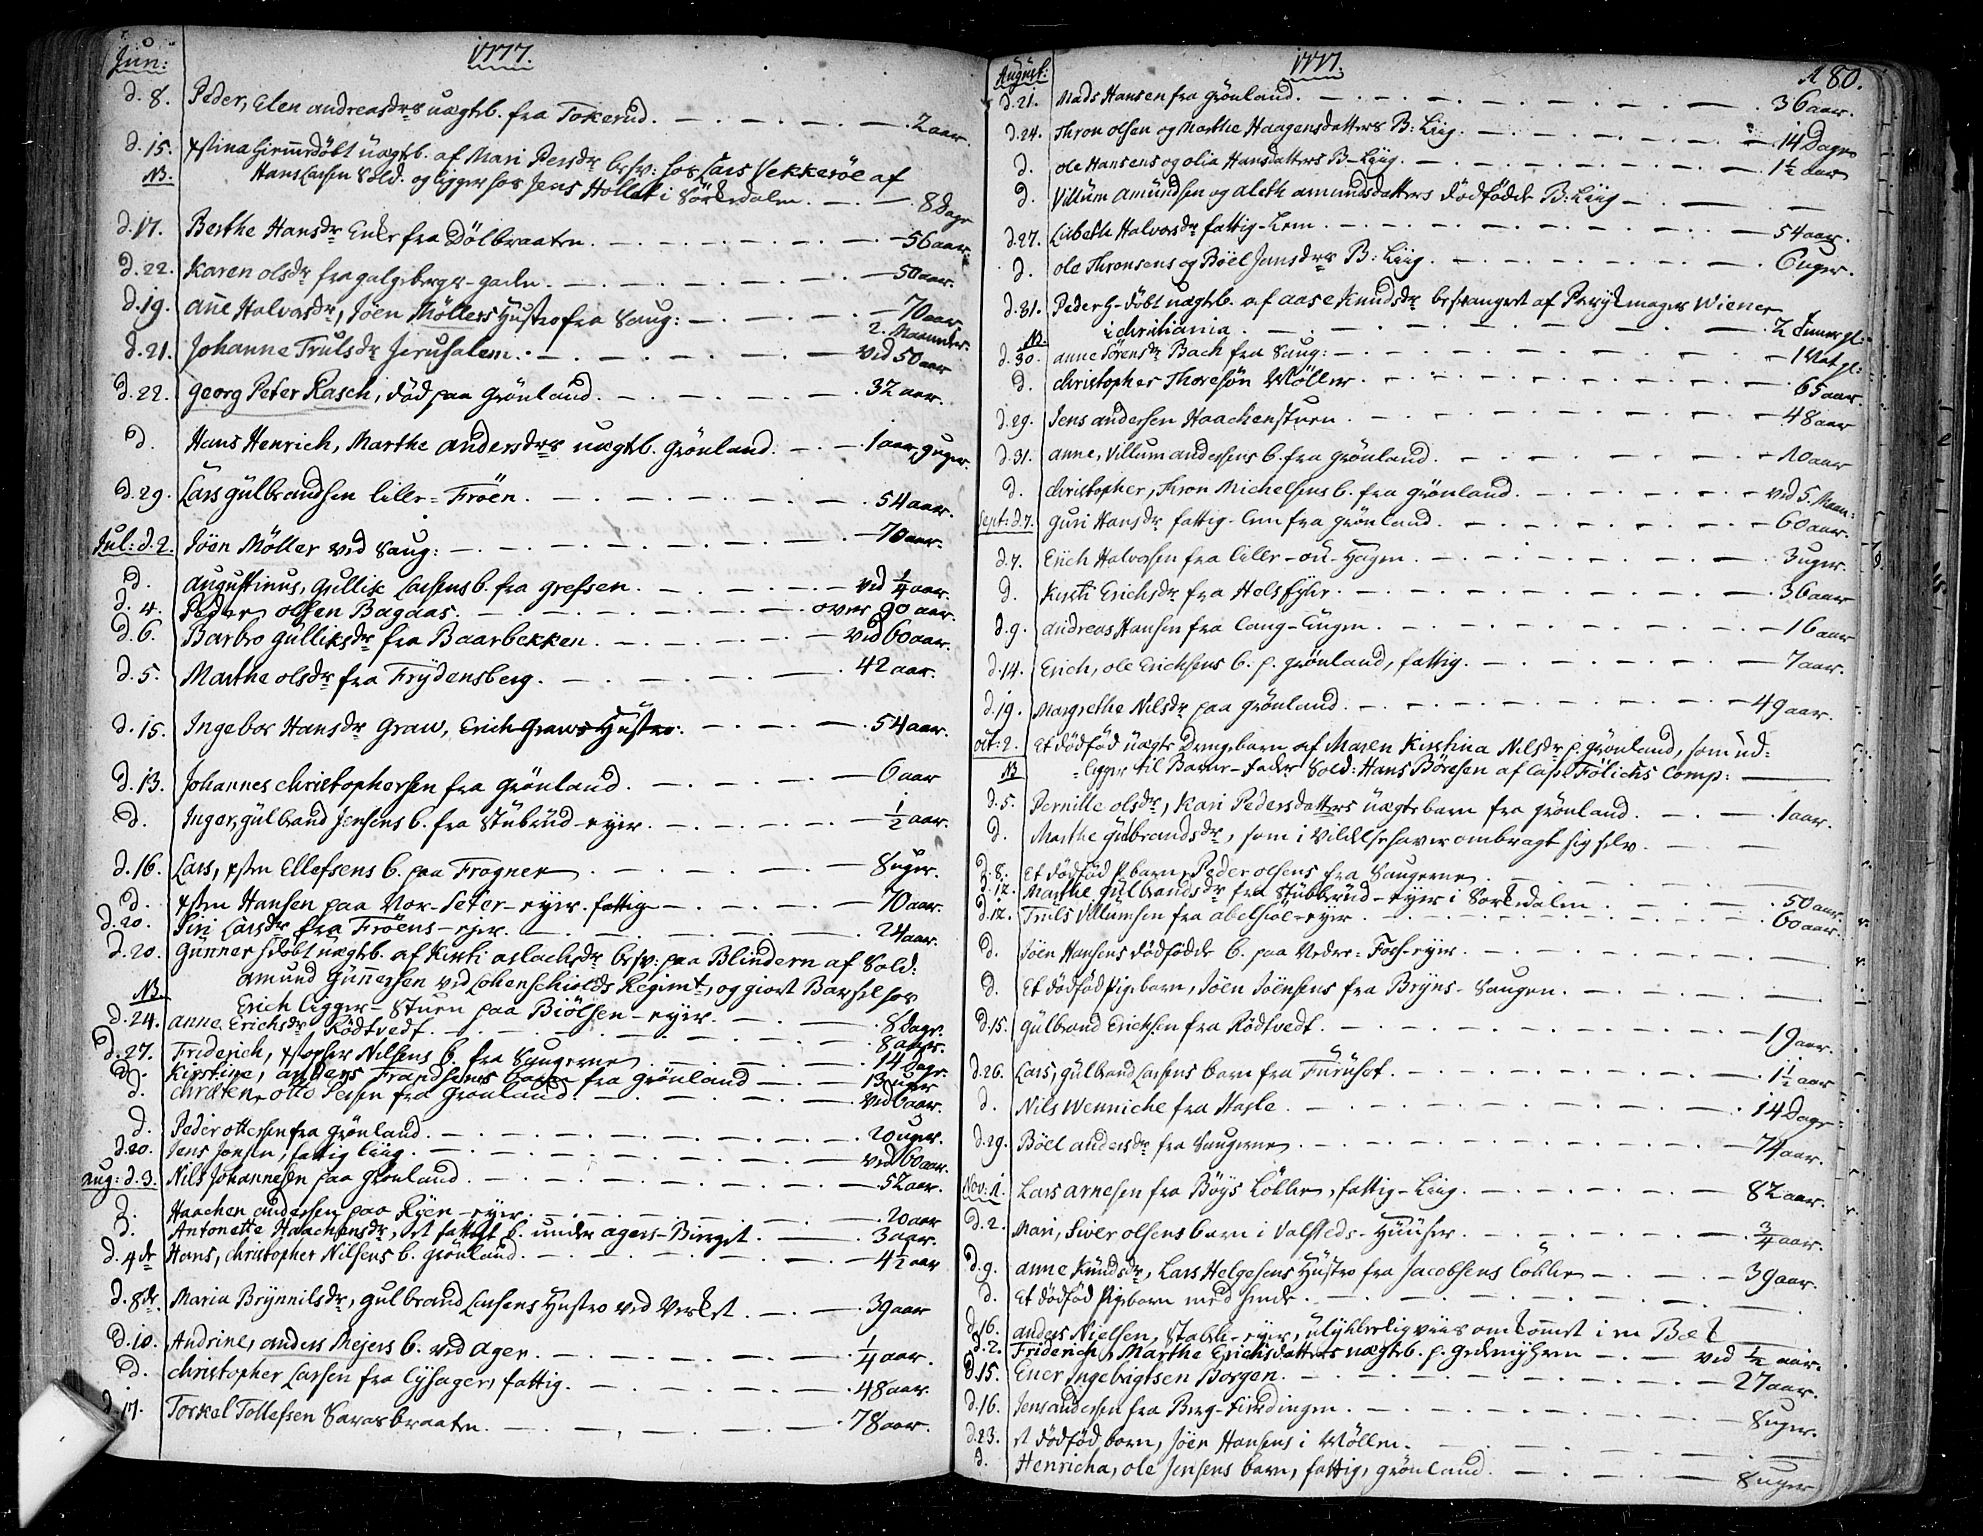 Jun:
1777.
d. 8. Peder, Elen andreasdrs uægtb. fra Tokerud. 2 aar.
d. 15. xstina hiemedöbt uægtb. af Mari Persdr besv: hos Lars Vekkeröe af
NB. Hans Larsen Sold. og ligger hos Jens Hollet i Sörkedalen. 8 Dage
d. 17. Berthe Hansdr Enke fra Dölbraaten. 56 aar.
d. 22. Karen olsdr fra galgebergs-gaden. 50 aar.
d. 19. añe Halvorsdr, Jöen Möllers Hustro fra Saug: 70 aar,
2. Maaneder.
d. 21. Johanne Trulsdr Jerusalem. ved 50 aar
d. 22. georg Peter Rasch, död paa Grönland. 32 aar.
d Hans Henrich, Marthe andersdrs uægtb. Grönland. 1 aar, 9 uger.
d. 29. Lars gülbrandsen lille-Fröen. 54 aar.
Jul: d. 2. Jöen Möller ved Saug: 70 aar.
d. augustinus, Gullik Larsens b. fra grefsen. ved 1/4 aar.
d. 4. Peder olsen Bagaas. over 90 aar.
d. 6. Barbro gülliksdr fra Baarbekken. ved 60 aar.
d. 5. Marthe olsdr fra Frydensberg. 42 aar.
d. 15. Ingebor Hansdr Graw, Erich Graws Hustro. 54 aar.
d. 13. Johannes christophersen fra grönland. 6 aar
d. Inger, gülbrand Jensens b. fra Stübrüd-eyer. 1/2 aar.
d. 16. Lars, xsten Ellefsens b. paa Frogner 8 uger.
d. xsten Hansen paa Vor-Seter-eyer. fattig 70 aar.
d. 20. Siri Larsdr fra Fröens-ejer. 24 aar.
d. 20. Günner hdöbt uægtb. af Kirsti aslachsdr besv: paa Blindern af Sold:
NB. amund Gunnersen ved Regimt, og giort Barsel hos
Erich ligger-Stuen paa Biölsen-eyer. 8 dage.
d. 24. anne Erichsdr, Rödtvedt. 8 aar.
d. 27. Friderich, xstopher Nilsens b. fra Saugerne 14 Dage.
d. Kirstine, anders Frandsens fra Grönland 13 uger
d. otto Persen fra Grönland. ved 6 aar.
d. Peder ottersen fra Grönland. 20 uger.
d. 20. Jens Jensen, fattig liig. ved 60 aar.
aug: d. 3. Nils Johannesen paa Grönland 52 aar.
d. Haachen andersen paa Ryen-eyer. 20 aar
d. Antonette Haachensdr, et fattigt b. under agers-Bierget 3 aar.
d. 4de Hans, christopher Nilsens b. Grönland. 4 1/2 aar
d. 8de Maria Brynnilsdr, gulbrand Larsens Hustro ved Verket. 39 aar
d. 10. Andrine, anders Mejers b. ved ager. 1/4 aar.
d. christopher Larsen fra Lysager, fattig. 48 aar.
d. 17. Torkel Tollefsen Sarasbraaten. 78 aar.
August:
1777.
80.
d. 21. Mads Hansen fra grönland. 36 aar.
d. 24. Thron olsen og Marthe Haagensdatters B: Liig. 14 Dage
d. ole Hansens og olia Hansdatters B-Liig. 1 1/2 aar
d. Villum Amündsen og Aleth amundsdatters dödfödde B: Liig
d. 27. Lisbeth Halvorsdr fattig-Lem. 54 aar.
d. ole Thronsens og Böel Jensdrs B: Liig. 6 uger.
d. 31. Peder h-döbt uægtb. af aase Knudsdr besvangert af Perykmager Wiener
NB. i christiania. 1/2 Timer gl:
d. 30. anne Sörensdr Bach fra Saug: 1 Nat gl:
d. christopher Thoresön Möller. 65 aar.
d. 29. Jens andersen Haachenstuen. 48 aar
d. 31. anne, Villum andersens b. fra grönland. 10 aar
d. christopher, Thron Michelsens b. fra grönland. ved 5. Maan:
Sept: d. 7. guri Hansdr fattig-lem fra Grönland. 60 aar.
d. 7. Erich Halvorsen fra lille-ou-Hagen. 3 uger.
d. Kirsti Erichsdr fra Helsfyer. 36 aar
d. 9. andreas Hansen fra Lang-Engen. 16 aar
d. 14. Erich, ole Erichsens b. p. grönland, fattig. 7 aar.
d. 19. Margrethe Nilsdr paa Grönland. 49 aar.
oct: 2. Et dödföd uægte Drengebarn af Maren Kirstina Nilsdr p. grönland, som ud-
NB ligger til Barne-Fader Sold: Hans Böresen af Capt. Fölichs Comp:
d. 5. Pernille olsdr, Kari Pedersdatters uægte barn fra Grönland. 1 aar.
d. Marthe Gulbrandsdr, som i Vildelse haver ombragt sig selv.
d. 8. Et dödföd p. barn, Peder olsens fra Saugerne
d. 12. Marthe Gulbrandsdr fra Stübberüd-eyer i Sörkedalen 50 aar.
d. 12. Truls Villumsen fra abelsöe-eyer. 60 aar.
d. Jöen Hansens dödfödde b. paa Nedre-Foss-eyer.
d. Et dödföd Pigebarn, Jöen Jöensens fra Bryns-Saugen.
d. 15. Gülbrand Erichsen fra Rödtvedt. 19 aar.
d. 26. Lars, gülbrand Larsens barn fra Furuset. 1 1/2 aar
d. Nils Wenniche fra Hasle. 14 Dage
d. 29. Böel andersdr fra Saugerne. 74 aar.
Nov: 1. Lars arnesen fra Böys Lökken, fattig-Liig. 82 aar.
d. 2. Mari, Siver olsens barn i Valsteds-Huuser. 3/4 aar.
d. 9. anne Knudsdr, Lars Helgesens Hustro fra Jacobsens lökke 39 aar.
d. Et dödföd Pigebarn med hende.
d. 16. anders Nielsen, Stabek-eyer, ulykkeligviis omkomet i en Bæk
d. 2. Friderich, Marthe Erichsdatters uægteb. p. Gekmyhren ved 1/2 aar.
d. 15. Ener Ingebrigtsen Borgen. 27 aar.
d. 16. Jens andersen fra Berg-Fierdingen. 8 uger.
d. 23. et dödföd barn, Jöen Hansens i Möllen.
d. Henricha, ole Jensens barn, fattig, grönland. 8 uger